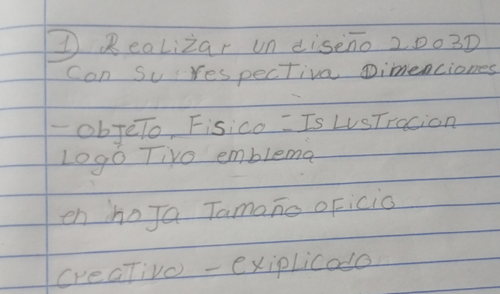 1) Realizar un diseño 2D o 3D
con su respectiva Dimenciones
- objeto Fisico = Islustracion
Logo Tivo emblema
en hoja Tamaño oficio
creativo - exiplicado